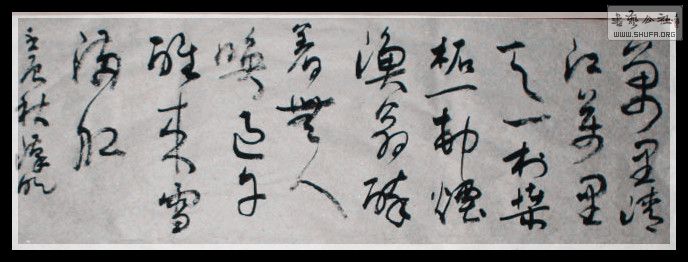 書藝公社
WWW.SHUFA.ORG
萬里清
江萬里
天一村桑
柘一村煙
漁翁醉
着無人
喚過午
醒来雪
滿舡
壬辰秋